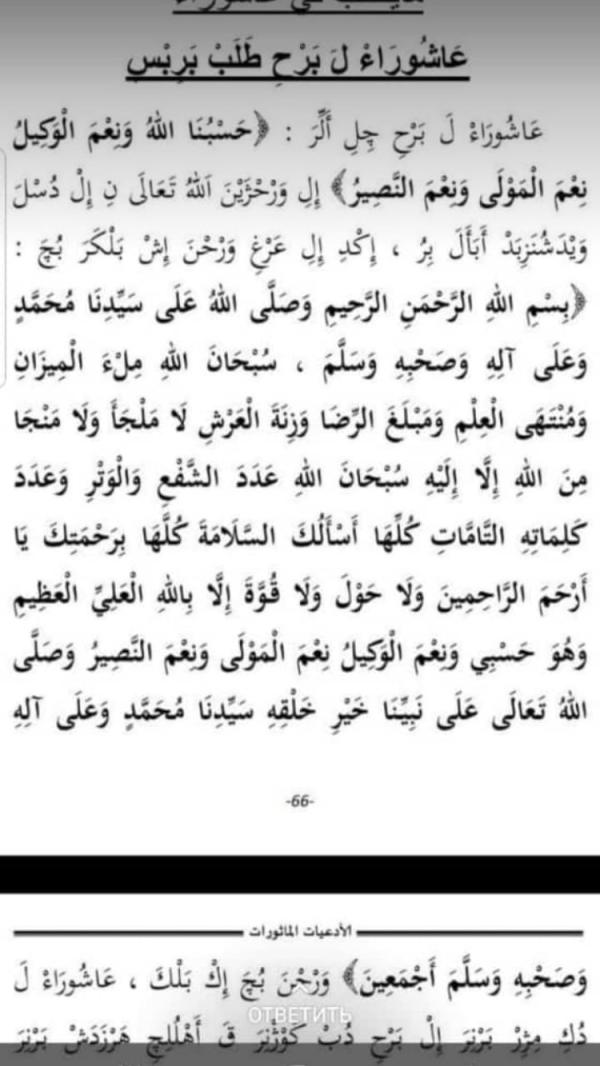 عَاشُورَاءْ لَ بَرْحِ طَلَبْ بَرِبْسِ
عَاشُورَاءْ لَ بَرْحِ جِلِ أَلَّرَ : ﴿حَسْبُنَا اللهُ وَنِعْمَ الْوَكِيلُ
نِعْمَ الْمَوْلَى وَنِعْمَ النَّصِيرُ﴾ إِلِ وَرْحْزَيْنَ اَللهُ تَعَالَى نِ إِلْ دُسْلَ
وَيْدَشْنَزِبَدْ أَبَأَلَ بِرُ ، إِكْدِ إِلِ عَرْغِ وَرْحْنَ إِشْ بَلْكَرَ بُجَ :
﴿بِسْمِ اللهِ الرَّحْمَنِ الرَّحِيمِ وَصَلَّى اللهُ عَلَى سَيِّدِنَا مُحَمَّدٍ
وَعَلَى آلِهِ وَصَحْبِهِ وَسَلَّمَ ، سُبْحَانَ اللهِ مِلْءَ الْمِيزَانِ
وَمُنْتَهَى الْعِلْمِ وَمَبْلَغَ الرِّضَا وَزِنَةَ الْعَرْشِ لَا مَلْجَأَ وَلَا مَنْجَا
مِنَ اللهِ إِلَّا إِلَيْهِ سُبْحَانَ اللهِ عَدَدَ الشَّفْعِ وَالْوَتْرِ وَعَدَدَ
كَلِمَاتِهِ التَّامَّاتِ كُلِّهَا أَسْأَلُكَ السَّلَامَةَ كُلَّهَا بِرَحْمَتِكَ يَا
أَرْحَمَ الرَّاحِمِينَ وَلَا حَوْلَ وَلَا قُوَّةَ إِلَّا بِاللهِ الْعَلِيِّ الْعَظِيمِ
وَهُوَ حَسْبِي وَنِعْمَ الْوَكِيلُ نِعْمَ الْمَوْلَى وَنِعْمَ النَّصِيرُ وَصَلَّى
اللهُ تَعَالَى عَلَى نَبِيِّنَا خَيْرِ خَلْقِهِ سَيِّدِنَا مُحَمَّدٍ وَعَلَى آلِهِ
-66-
الأدعيات الماثورات
وَصَحْبِهِ وَسَلَّمَ أَجْمَعِينَ﴾ وَرْحْنَ بُجَ إِكْ بَلْكَ ، عَاشُورَاءْ لَ
ОТВЕТИТЬ
دُكِ مِژِرْ بَرْبَرَ إِلْ بَرْحِ دُبْ كَوْژْبَرَ قَ أَهْلُلِچِ هَرْزَدَشْ بَرْبَرَ